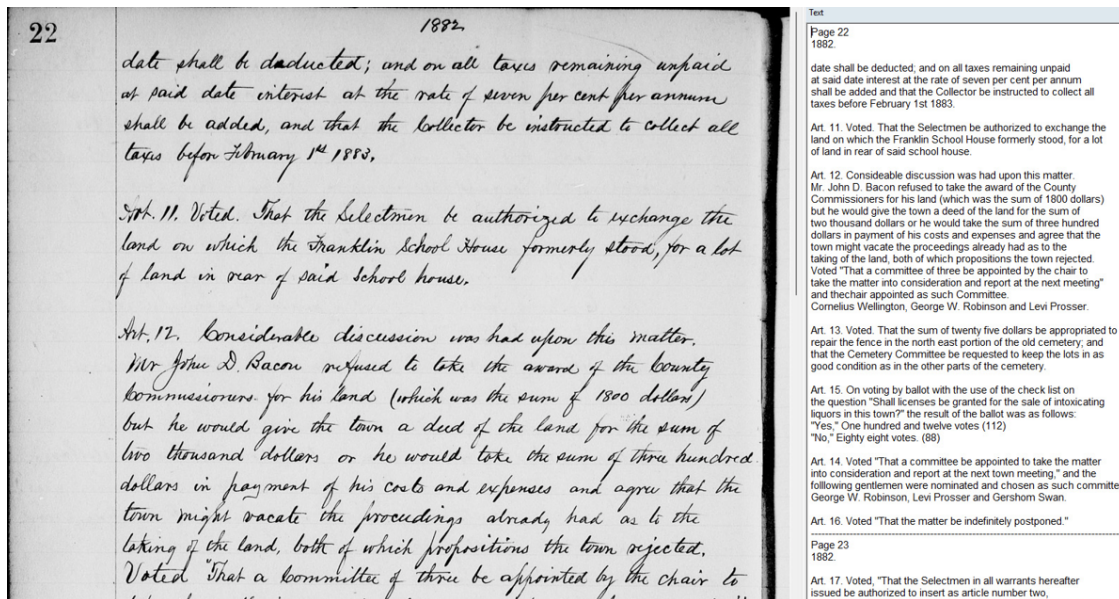 22
1882
date shall be deducted; and on all taxes remaining unpaid
at said date interest at the rate of seven per cent per annum
shall be added, and that the Collector be instructed to collect all
taxes before February 1st 1883.
Art. 11. Voted. That the Selectmen be authorized to exchange the
land on which the Franklin School House formerly stood, for a lot
of land in rear of said School house.
Art. 12. Considerable discussion was had upon this matter.
Mr John D. Bacon refused to take the award of the County
Commissioners for his land (which was the sum of 1800 dollars)
but he would give the town a deed of the land for the sum of
two thousand dollars or he would take the sum of three hundred
dollars in payment of his costs and expenses and agree that the
town might vacate the proceedings already had as to the
taking of the land, both of which propositions the town rejected.
Voted "That a Committee of three be appointed by the chair to
Text
Page 22
1882.
date shall be deducted; and on all taxes remaining unpaid
at said date interest at the rate of seven per cent per annum
shall be added and that the Collector be instructed to collect all
taxes before February 1st 1883.
Art. 11. Voted. That the Selectmen be authorized to exchange the
land on which the Franklin School House formerly stood, for a lot
of land in rear of said school house.
Art. 12. Consideable discussion was had upon this matter.
Mr. John D. Bacon refused to take the award of the County
Commissioners for his land (which was the sum of 1800 dollars)
but he would give the town a deed of the land for the sum of
two thousand dollars or he would take the sum of three hundred
dollars in payment of his costs and expenses and agree that the
town might vacate the proceedings already had as to the
taking of the land, both of which propositions the town rejected.
Voted "That a committee of three be appointed by the chair to
take the matter into consideration and report at the next meeting"
and thechair appointed as such Committee.
Cornelius Wellington, George W. Robinson and Levi Prosser.
Art. 13. Voted. That the sum of twenty five dollars be appropriated to
repair the fence in the north east portion of the old cemetery; and
that the Cemetery Committee be requested to keep the lots in as
good condition as in the other parts of the cemetery.
Art. 15. On voting by ballot with the use of the check list on
the question "Shall licenses be granted for the sale of intoxicating
liquors in this town?" the result of the ballot was as follows:
"Yes," One hundred and twelve votes (112)
"No," Eighty eight votes. (88)
Art. 14. Voted "That a committee be appointed to take the matter
into consideration and report at the next town meeting," and the
folllowing gentlemen were nominated and chosen as such committe
George W. Robinson, Levi Prosser and Gershom Swan.
Art. 16. Voted "That the matter be indefinitely postponed."
Page 23
1882.
Art. 17. Voted, "That the Selectmen in all warrants hereafter
issued be authorized to insert as article number two,